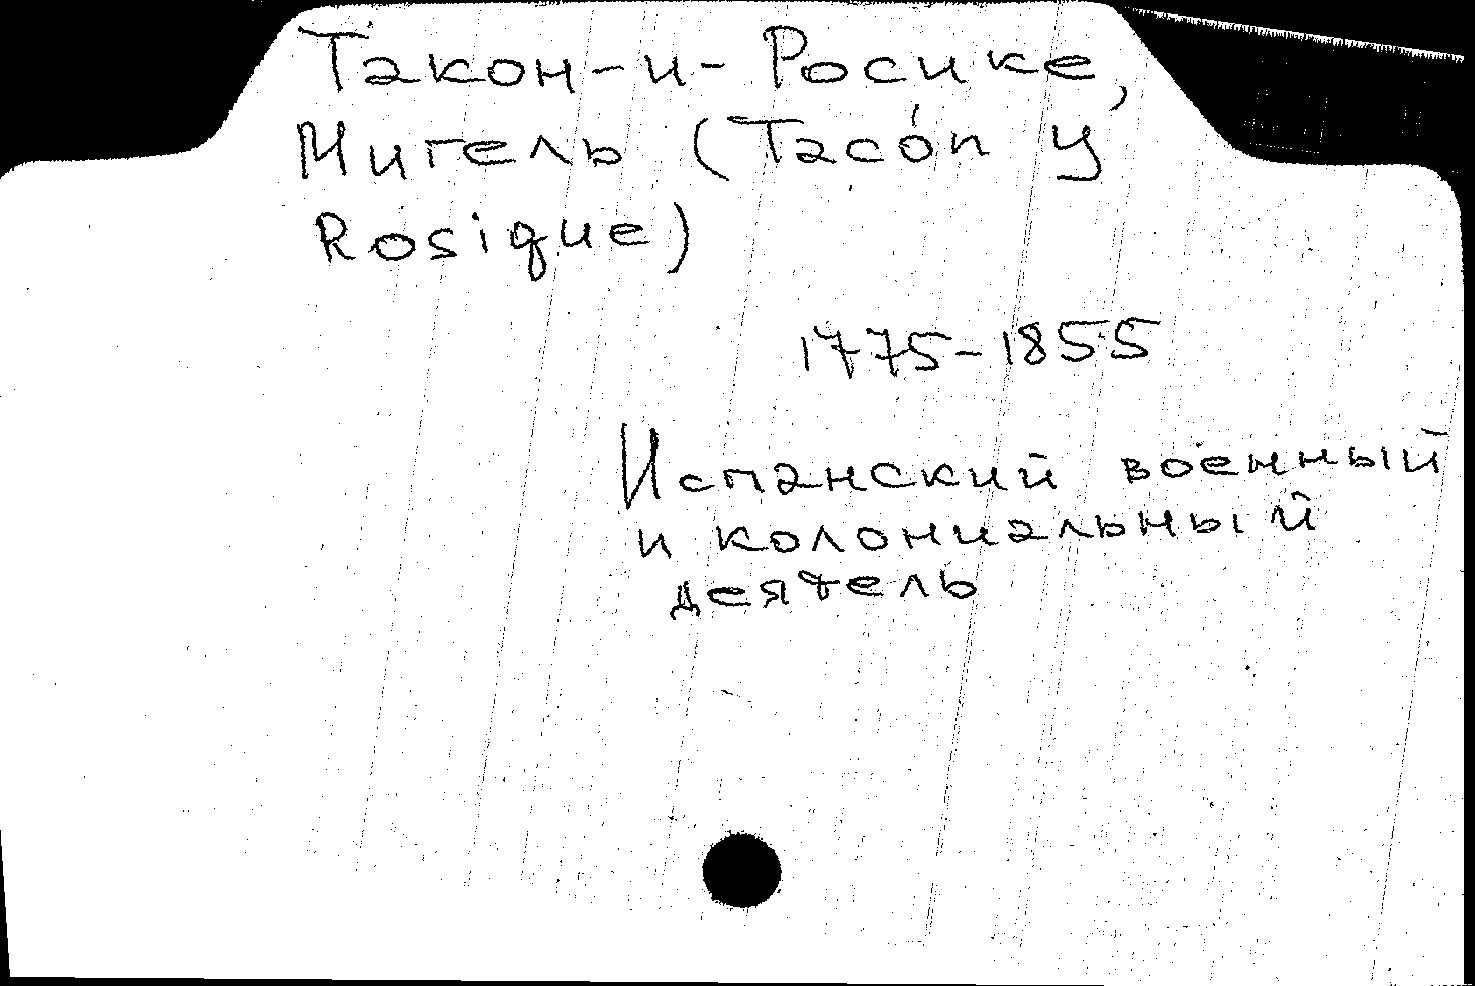 Такон-и-Росике,
Мигель (Tacón y
Rosique)
1775-1855
Испанский военный
и колониальный
деятель